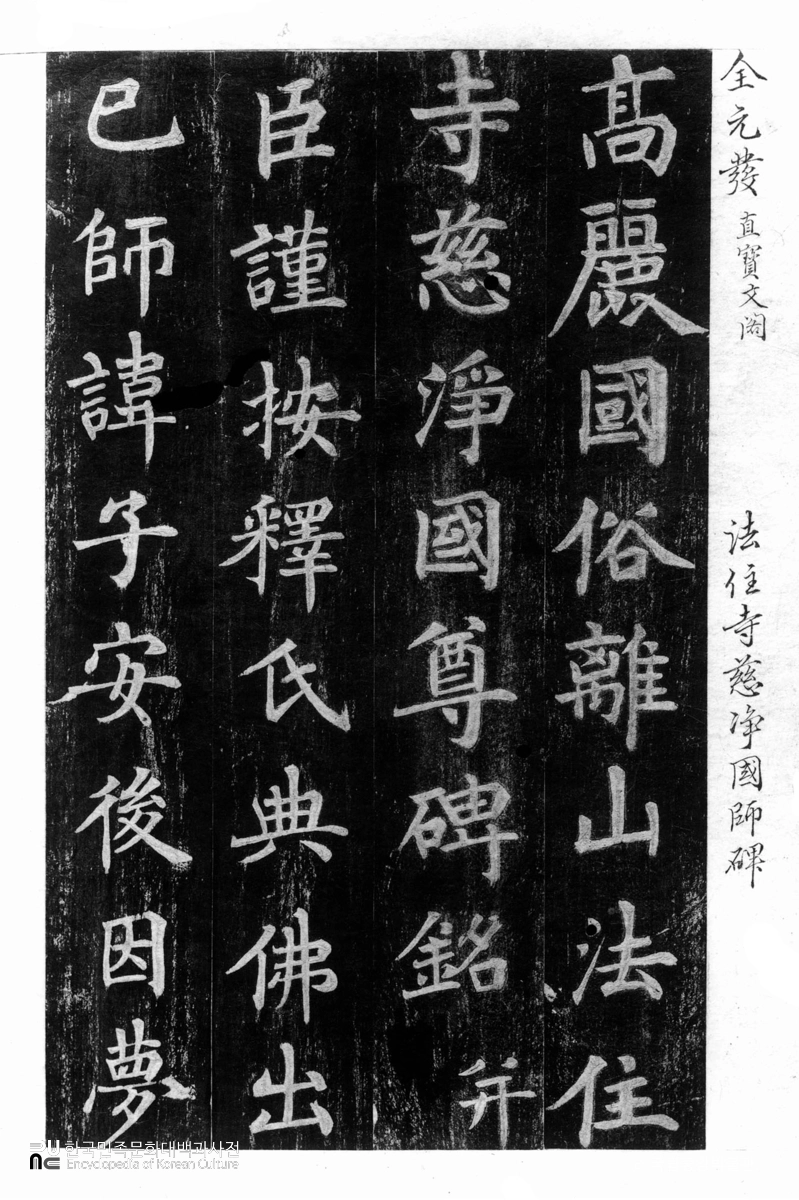 全元發 直寶文閣 法住寺慈淨國師碑
高麗國俗離山法住
寺慈淨國尊碑銘 并
臣謹按釋氏典佛出
已師諱子安後因夢
한국민족문화대백과사전
Encyclopedia of Korean Culture